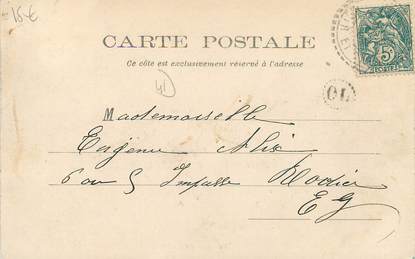 15€
CARTE POSTALE
Ce côté est exclusivement réservé à l'adresse
Mademoiselle
Eugénie Alix
6 ou 5 Impasse Rodier
E G
OL
5